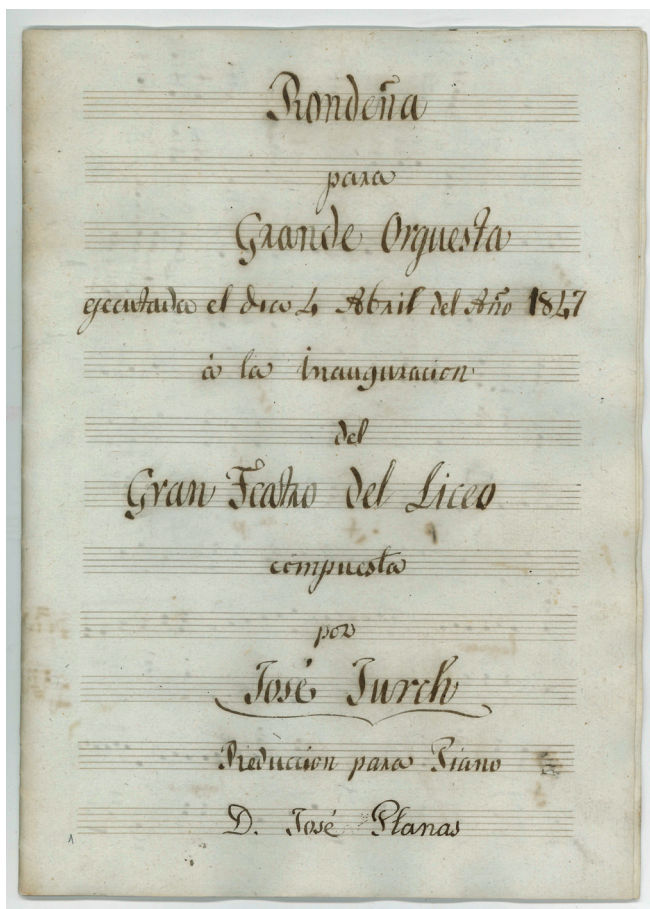 Rondeña
para
Grande Orquesta
ejecutada el dia 4 Abril del Año 1847
à la inauguracion
del
Gran Teatro del Liceo
compuesta
por
José Jurch
Reduccion para Piano
D. José Planas
1